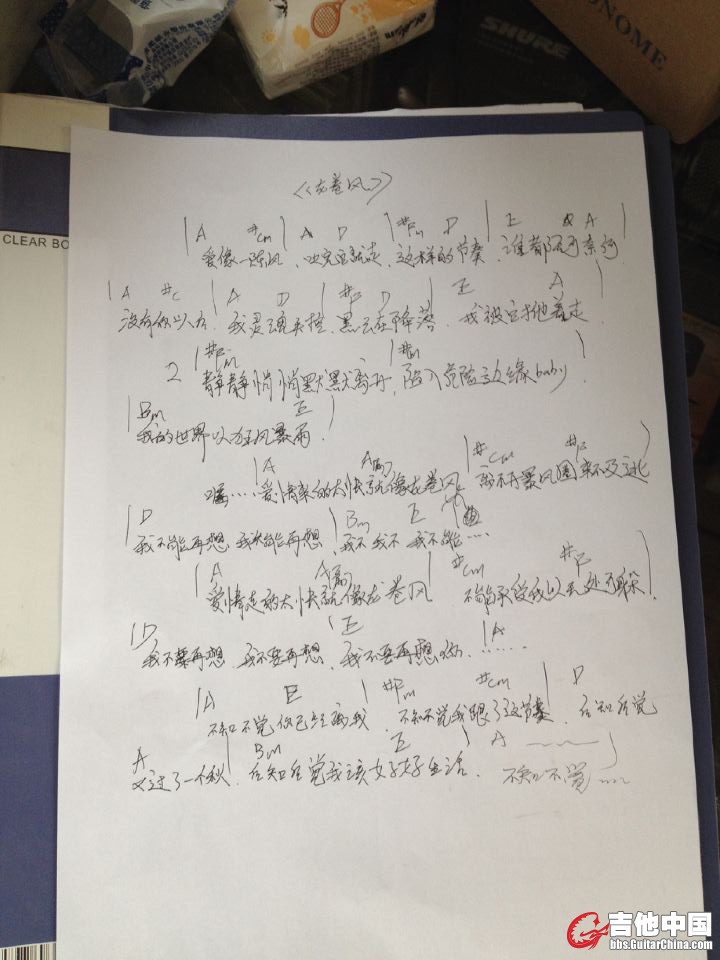 SHURE
ONOME
CLEAR BO
<<龙卷风>>
|A #Cm| A D |#Fm D | E A|
爱像一阵风 吹完它就走 这样的节奏 谁都无可奈何
|A #C |A D |#F D | E A|
没有你以后 我灵魂失控 黑云在降落 我被它拖着走
2 |#Fm |#m
静静悄悄默默离开 陷入危险边缘baby
|Bm E |
我的世界以为狂风暴雨
|A A |#Cm #F |
嘿…… 爱情来的太快就像龙卷风 离不开暴风圈来不及逃
|D |Bm E
我不能再想 我不能再想 我不 我不 我不能……
|A A |#Cm #F |
爱情走的太快就像龙卷风 不能承受我以无处可躲
|D |E |A
我不要再想 我不要再想 我不要再想你 ……
|A E |#Fm #Cm | D
不知不觉 你已经离我 不知不觉 我跟了这节奏 后知后觉
A | Bm E | A |
又过了一个秋 后知后觉 我该好好生活 不知不觉……
吉他中国
bbs.GuitarChina.com